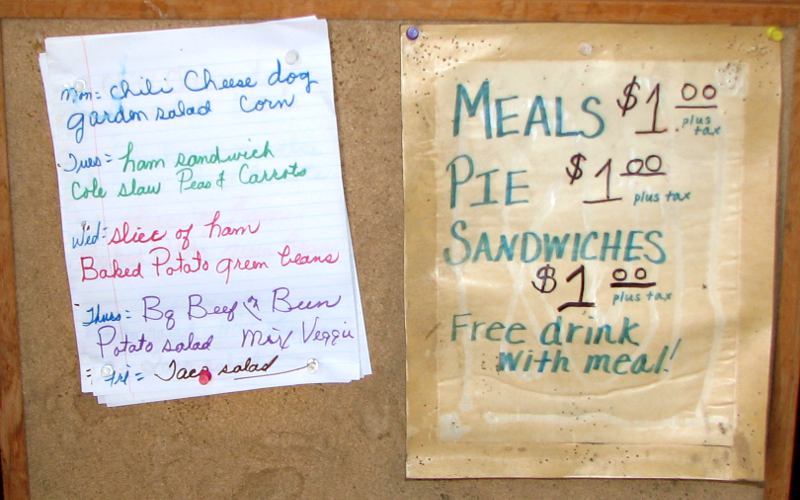 Mon= Chili Cheese dog
garden salad Corn
Tues= ham sandwich
Cole slaw Peas & Carrots
Wed= slice of ham
Baked Potato green beans
Thurs= Bq Beef & Bun
Potato salad Mix Veggie
Fri= Taco salad
MEALS $1.00 plus tax
PIE $1.00 plus tax
SANDWICHES
$1.00 plus tax
Free drink
with meal!